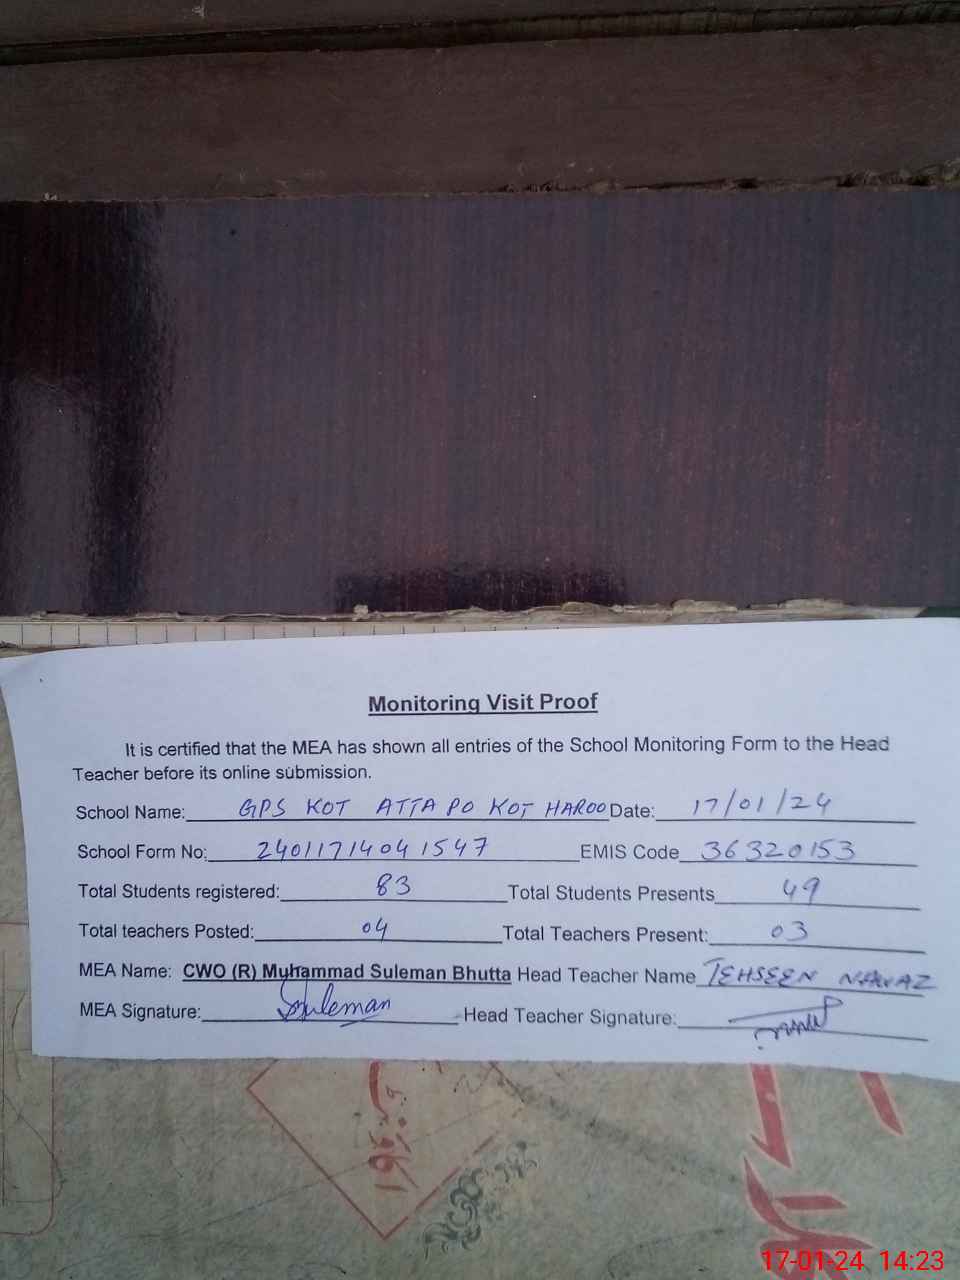 Monitoring Visit Proof
It is certified that the MEA has shown all entries of the School Monitoring Form to the Head
Teacher before its online submission.
School Name: GPS KOT ATTA PO KOT HAROO Date: 17/01/24
School Form No: 24011714041547 EMIS Code 36320153
Total Students registered: 83 Total Students Presents 49
Total teachers Posted: 04 Total Teachers Present: 03
MEA Name: CWO (R) Muhammad Suleman Bhutta Head Teacher Name TEHSEEN NAWAZ
MEA Signature: Suleman Head Teacher Signature:
17-01-24 14:23